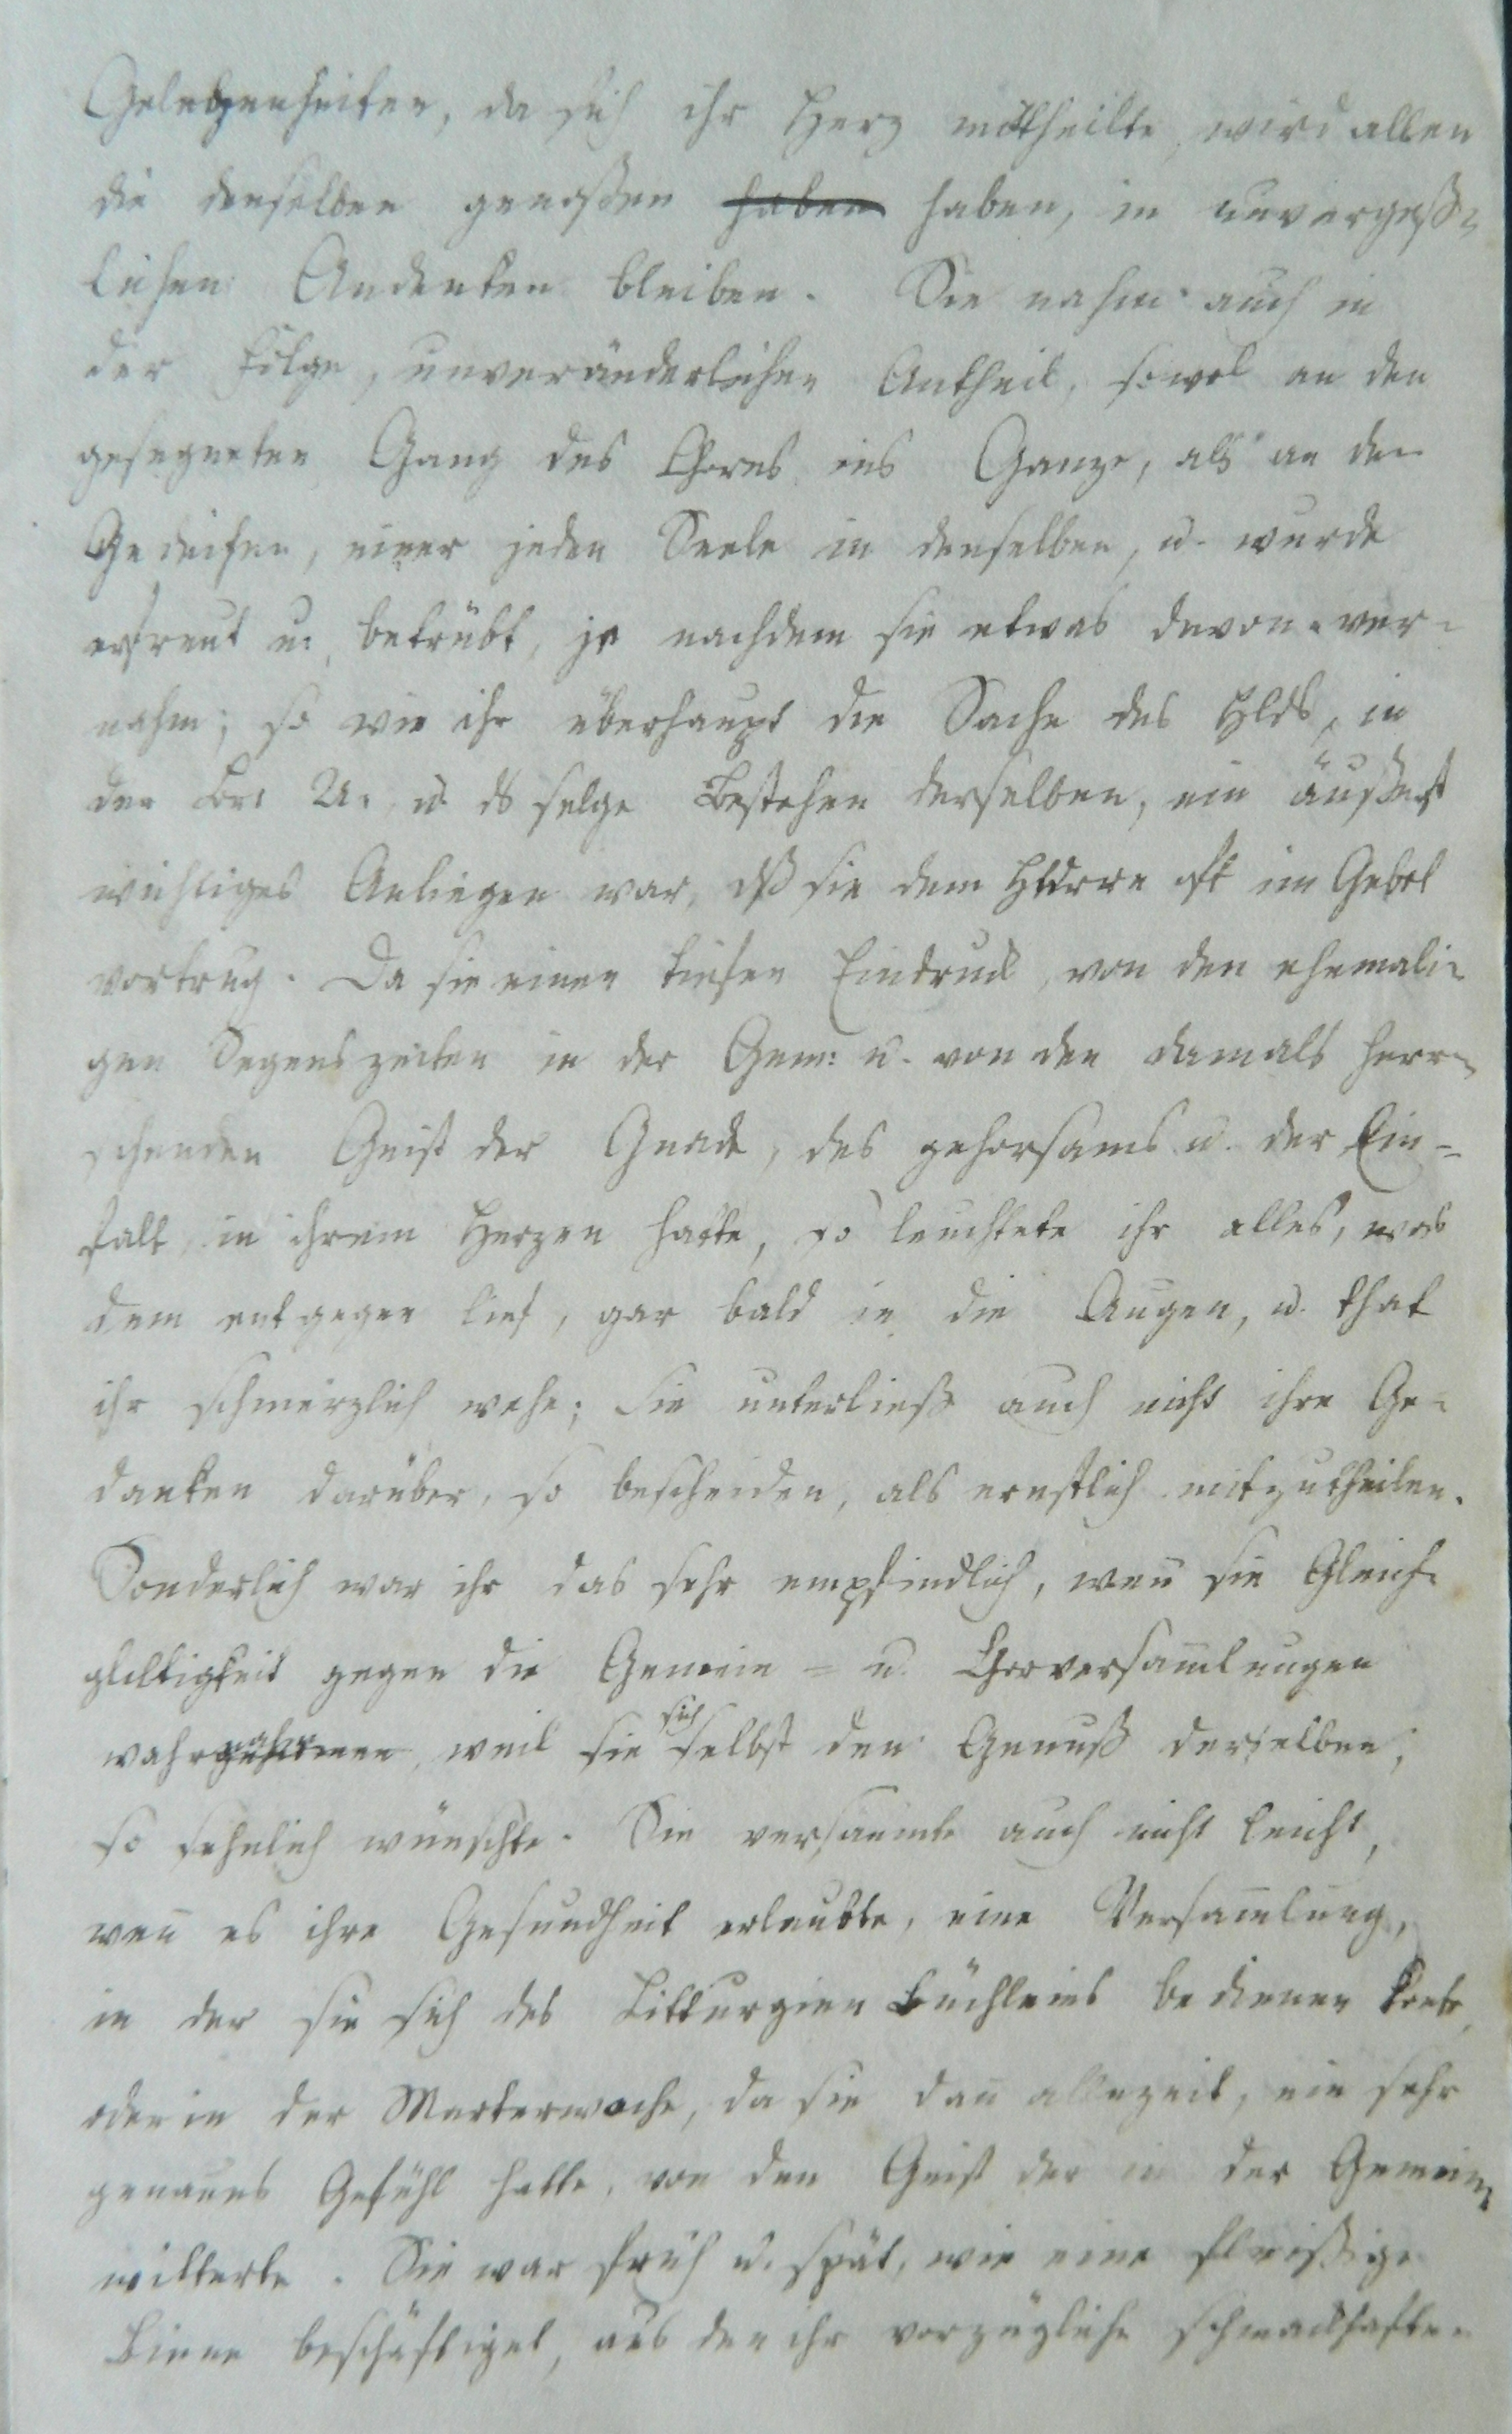 Gelegenheiten, da sich ihr Herz mittheilte, wird allen
die denselben genoßen haben haben, in unvergeß-
lichen Andenken bleiben. Sie nahm auch in
der Folge, unveränderlichen Antheil, sowol an den
gesegneten Gang des Chores ins Ganze, als an den
Gedeihen, einer jeden Seele in denselben, u. wurde
erfreut u. betrübt, je nachdem sie etwas davon ver-
nahm; so wie ihr überhaupt die Sache des Hlds, in
der Br: U: u. ds selge Bestehen derselben, ein äußerst
wichtiges Anliegen war, dß sie dem Hlde oft im Gebet
vortrug. Da sie einen tiefen Eindruck, von den ehemali-
gen Segenszeiten in der Gem: u. von den damals herr-
schenden Geist der Gnade, des gehorsams u. der Ein-
falt, in ihrem Herzen hatte, so leuchtete ihr alles, was
dem entgegen lief, gar bald in die Augen, u. that
ihr schmerzlich wehe; Sie unterließ auch nicht ihre Ge-
danken darüber, so bescheiden, als ernstlich mitzutheilen.
Sonderlich war ihr das sehr empfindlich, wen̄ sie Gleich-
gültigkeit gegen die Gemein- u. Chorversam̄lungen
wahrnahm, weil sie sich selbst den Genuß derselben,
so sehnlich wünschte. Sie versäumte auch nicht leicht,
wen̄ es ihre Gesundheit erlaubte, eine Versam̄lung,
in der sie sich des Litturgien Büchleins bedienen konte,
oder in der Marterwoche, da sie dan̄ allezeit, ein sehr
genaues Gefühl hatte, von den Geist der in der Gemein
witterte. Sie war früh u. spät, wie eine fleißige
Biene beschäftiget, aus den ihr vorzügliche schmackhaften